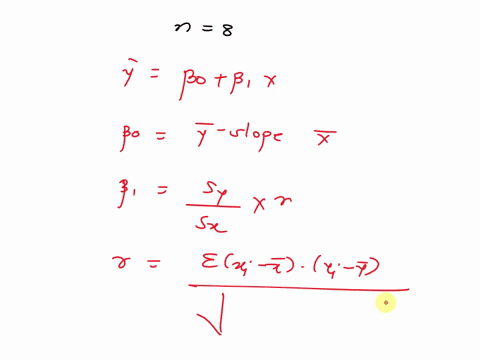 n = 8
ŷ = β0 + β1 x
β0 = ȳ - slope x̄
β1 = sy / sx × r
r = Σ(xi - x̄) . (yi - ȳ) / √